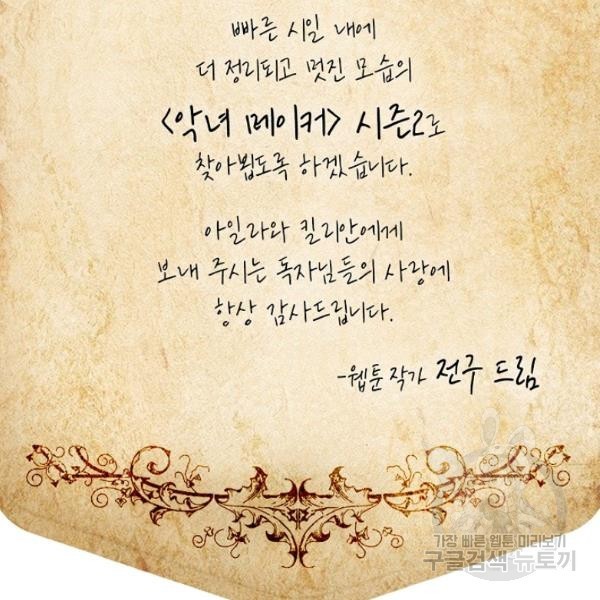 빠른 시일 내에
더 정리되고 멋진 모습의
<악녀 메이커> 시즌2로
찾아뵙도록 하겠습니다.
아일라와 킬리안에게
보내 주시는 독자님들의 사랑에
항상 감사드립니다.
-웹툰 작가 전구 드림
가장 빠른 웹툰 미리보기
구글검색 뉴토끼